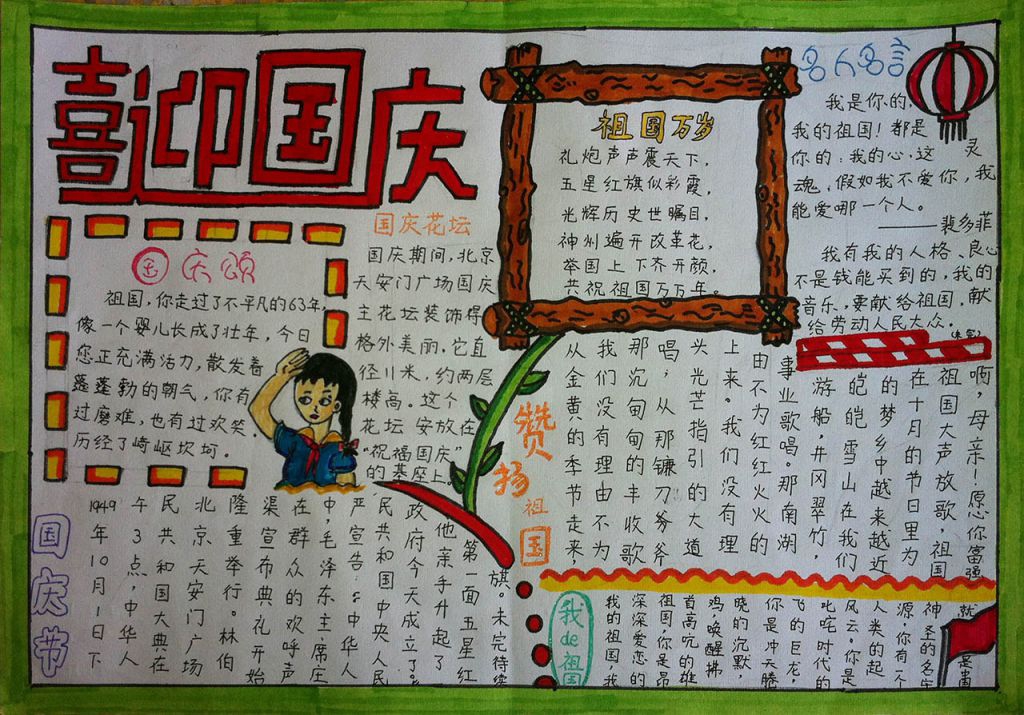 喜迎国庆
国庆颂
祖国,你走过了不平凡的63年,
像一个婴儿长成了壮年,今日
您正充满活力,散发着
蓬蓬勃的朝气,你有
过磨难,也有过欢笑。
历经了崎岖坎坷。
国庆花坛
国庆期间,北京
天安门广场国庆
主花坛装饰得
格外美丽,它直
径11米,约两层
楼高。这个
花坛安放在
“祝福国庆”
的基座上
祖国万岁
礼炮声声震天下,
五星红旗似彩霞,
光辉历史世瞩目,
神州遍开改革花,
举国上下齐开颜,
共祝祖国万万年。
名人名言
我是你的,
我的祖国!都是
你的:我的心,这灵
魂,假如我不爱你,我
能爱哪一个人。
——裴多菲
我有我的人格、良心
不是钱能买到的,我的
音乐,要献给祖国,献
给劳动人民大众。
国庆节
1949年10月1日下
午3点,中华人
民共和国大典在
北京天安门广场
隆重举行。林伯
渠宣布典礼开始
在群众的欢呼声
中,毛泽东主席庄
严宣告:“中华人
民共和国中央人民
政府今天成立了。
他亲手升起了
第一面五星红
旗。未完待续
赞扬祖国
从金黄的季节走来,
我们没有理由不为
那沉甸甸的丰收歌
唱,从那镰刀爷爷
头光芒指引的大道
上来。我们没有理
由不为红红火火的
事业歌唱。那南湖
游船,井冈翠竹,
皑皑雪山在我们
的梦乡中越来越近
在十月的节日里为
祖国大声放歌,祖国
啊,母亲!愿你富强
我de祖国
我的祖国,我
深深爱恋的
祖国,你是昂
首高吭的雄
鸡,唤醒拂
晓的沉默,
你是冲天腾
飞的巨龙,
叱咤时代的
风云。你是
人类的起
源,你有一个
神圣的名字
就是